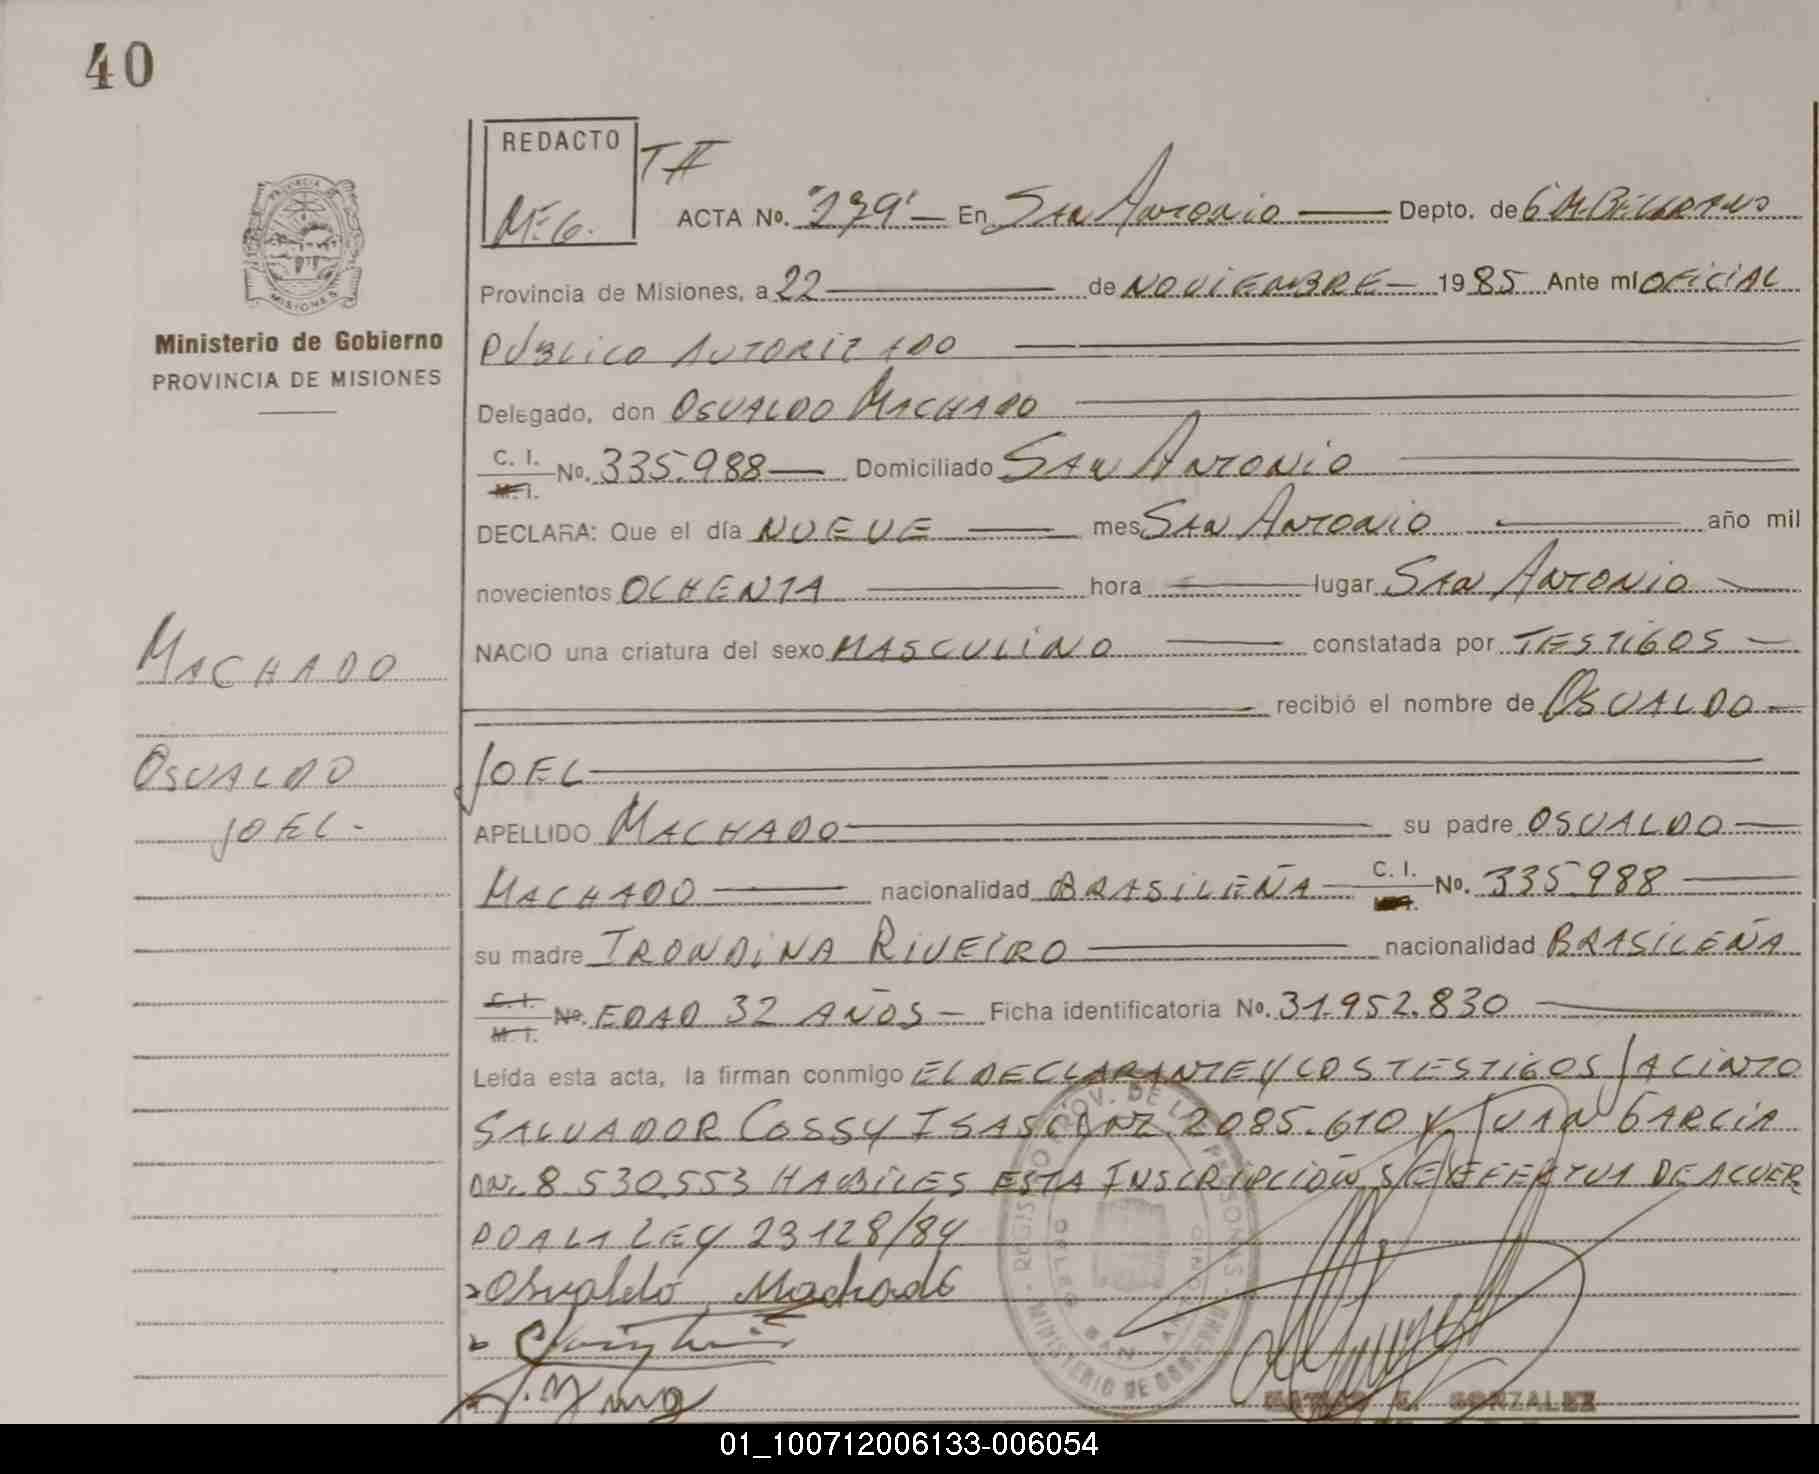 40
REDACTO
M.E.G.
PROVINCIA DE
MISIONES
Ministerio de Gobierno
PROVINCIA DE MISIONES
ACTA No. "279" En SAN ANTONIO Depto. de G M. BELGRANO
Provincia de Misiones, a 22 de NOVIEMBRE 1985 Ante mI OFICIAL
PÚBLICO AUTORIZADO
Delegado, don OSVALDO MACHADO
C. I. No. 335.988 Domiciliado SAN ANTONIO
M. I.
DECLARA: Que el día NUEVE mes SAN ANTONIO año mil
novecientos OCHENTA hora lugar SAN ANTONIO
NACIO una criatura del sexo MASCULINO constatada por TESTIGOS
recibió el nombre de OSVALDO
JOEL
APELLIDO MACHADO su padre OSVALDO
MACHADO nacionalidad BRASILEÑA C. I. No. 335.988
su madre IRONDINA RIVEIRO nacionalidad BRASILEÑA
C. I. M. I. No. EDAD 32 AÑOS Ficha identificatoria No. 31.952.830
Leída esta acta, la firman conmigo EL DECLARANTE Y LOS TESTIGOS JACINTO
SALVADOR COSSY ISASCA DNI. 2085.610 Y JUAN GARCIA
DNI. 8.530.553 HABILES ESTA INSCRIPCIÓN SE EFECTUA DE ACUER
DO A LA LEY 23128/84
Osvaldo Machado
MACHADO
OSVALDO
JOEL-
E. GONZALEZ
01_100712006133-006054